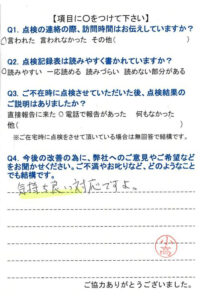 【項目に○をつけて下さい】
Q1. 点検の連絡の際、訪問時間はお伝えしていますか?
言われた 言われなかった その他( )
Q2. 点検記録表は読みやすく書かれていますか?
読みやすい 一応読める 読みづらい 読めない部分がある
Q3. ご不在時に点検させていただいた後、点検結果の
ご説明はありましたか?
直接報告に来た 電話で報告があった 何もなかった
他( )
※ご在宅時に点検をさせて頂いている場合は無回答で結構です。
Q4. 今後の改善の為に、弊社へのご意見やご希望など
をお聞かせください。ご不満やお叱りなど、どのようなこと
でも結構です。
気持ち良い対応ですよ。
小
ご協力ありがとうございました。